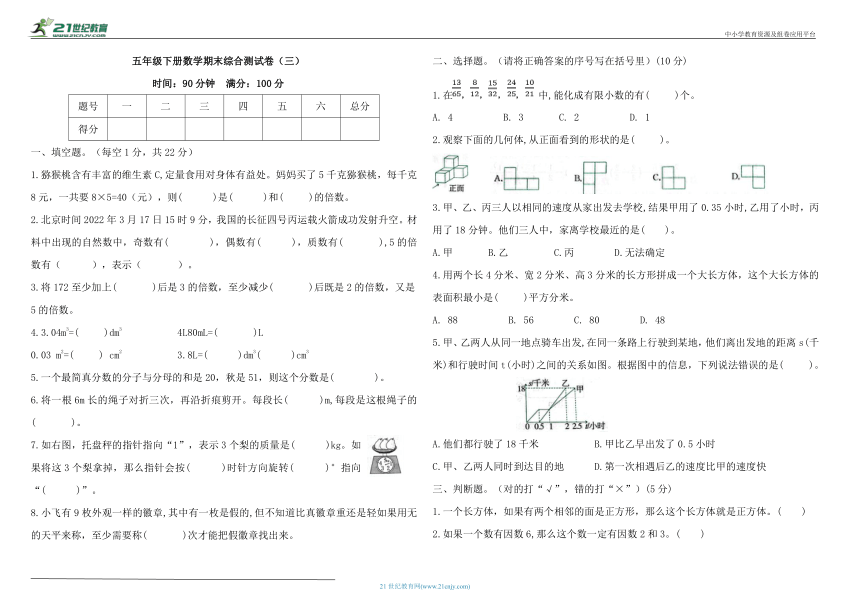 21世纪教育
WWW.21CNJY.COM
中小学教育资源及组卷应用平台
五年级下册数学期末综合测试卷（三）
时间：90分钟 满分：100分
题号 一 二 三 四 五 六 总分
得分
一、填空题。（每空1分，共22分）
1.猕猴桃含有丰富的维生素C,定量食用对身体有益处。妈妈买了5千克猕猴桃，每千克
8元，一共要8×5=40（元），则( )是( )和( )的倍数。
2.北京时间2022年3月17日15时9分，我国的长征四号丙运载火箭成功发射升空。材
料中出现的自然数中，奇数有( )，偶数有( )，质数有( ),5的倍
数有（ ），表示（ ）。
3.将172至少加上( )后是3的倍数，至少减少( )后既是2的倍数，又是
5的倍数。
4.3.04m³=( )dm³ 4L80mL=( )L
0.03 m²=( ) cm² 3.8L=( )dm³( )cm³
5.一个最简真分数的分子与分母的和是20，秋是51，则这个分数是( )。
6.将一根6m长的绳子对折三次，再沿折痕剪开。每段长( )m,每段是这根绳子的
( )。
7.如右图，托盘秤的指针指向“1”，表示3个梨的质量是( )kg。如
果将这3个梨拿掉，那么指针会按( )时针方向旋转( )°指向
“( )”。
8.小飞有9枚外观一样的徽章,其中有一枚是假的,但不知道比真徽章重还是轻如果用无
的天平来称，至少需要称( )次才能把假徽章找出来。
二、选择题。（请将正确答案的序号写在括号里）(10分)
1.在13/65，8/12，15/32，24/25，10/21中,能化成有限小数的有( )个。
A. 4 B. 3 C. 2 D. 1
2.观察下面的几何体,从正面看到的形状的是( )。
正面 A. B. C. D.
3.甲、乙、丙三人以相同的速度从家出发去学校,结果甲用了0.35小时,乙用了小时，丙
用了18分钟。他们三人中，家离学校最近的是( )。
A.甲 B.乙 C.丙 D.无法确定
4.用两个长4分米、宽2分米、高3分米的长方形拼成一个大长方体，这个大长方体的
表面积最小是( )平方分米。
A. 88 B. 56 C. 80 D. 48
5.甲、乙两人从同一地点骑车出发,在同一条路上行驶到某地,他们离出发地的距离s(千
米)和行驶时间t(小时)之间的关系如图。根据图中的信息，下列说法错误的是( )。
18 s/千米 乙 甲
0 0.5 1 2 2.5 t/小时
A.他们都行驶了18千米 B.甲比乙早出发了0.5小时
C.甲、乙两人同时到达目的地 D.第一次相遇后乙的速度比甲的速度快
三、判断题。（对的打“√”，错的打“×”）(5分)
1.一个长方体，如果有两个相邻的面是正方形，那么这个长方体就是正方体。( )
2.如果一个数有因数6,那么这个数一定有因数2和3。( )
21世纪教育网(www.21cnjy.com)